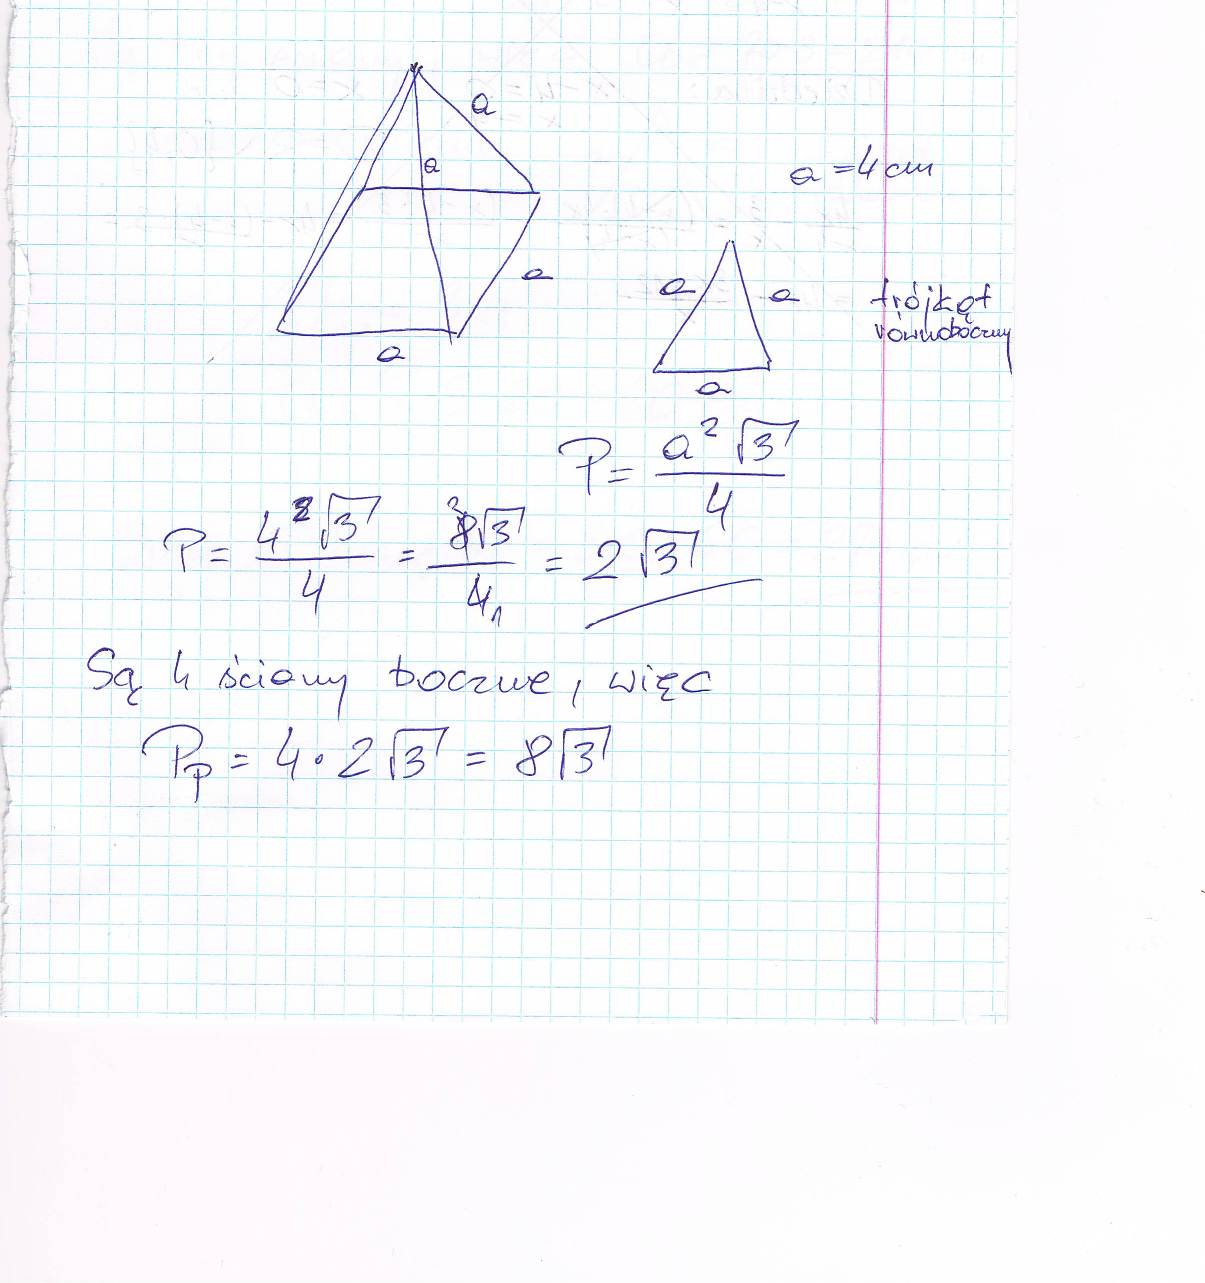 a
a
a = 4 cm
a
a
a a
trójkąt
równoboczny
a
P = a²√3 / 4
P = 4²√3 / 4 = 8√3 / 4 = 2√3
Są 4 ściany boczne, więc
Pp = 4 · 2√3 = 8√3